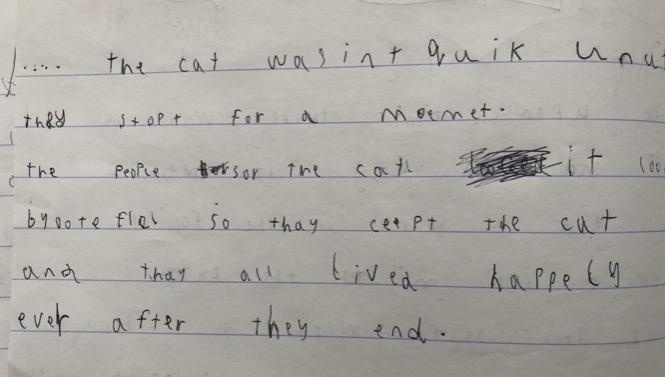 ..... the cat wasint quik
they stopt for a moemet.
the people sor the cat it
byooteflel so thay ceept the cat
and thay all lived happely
ever after they end.